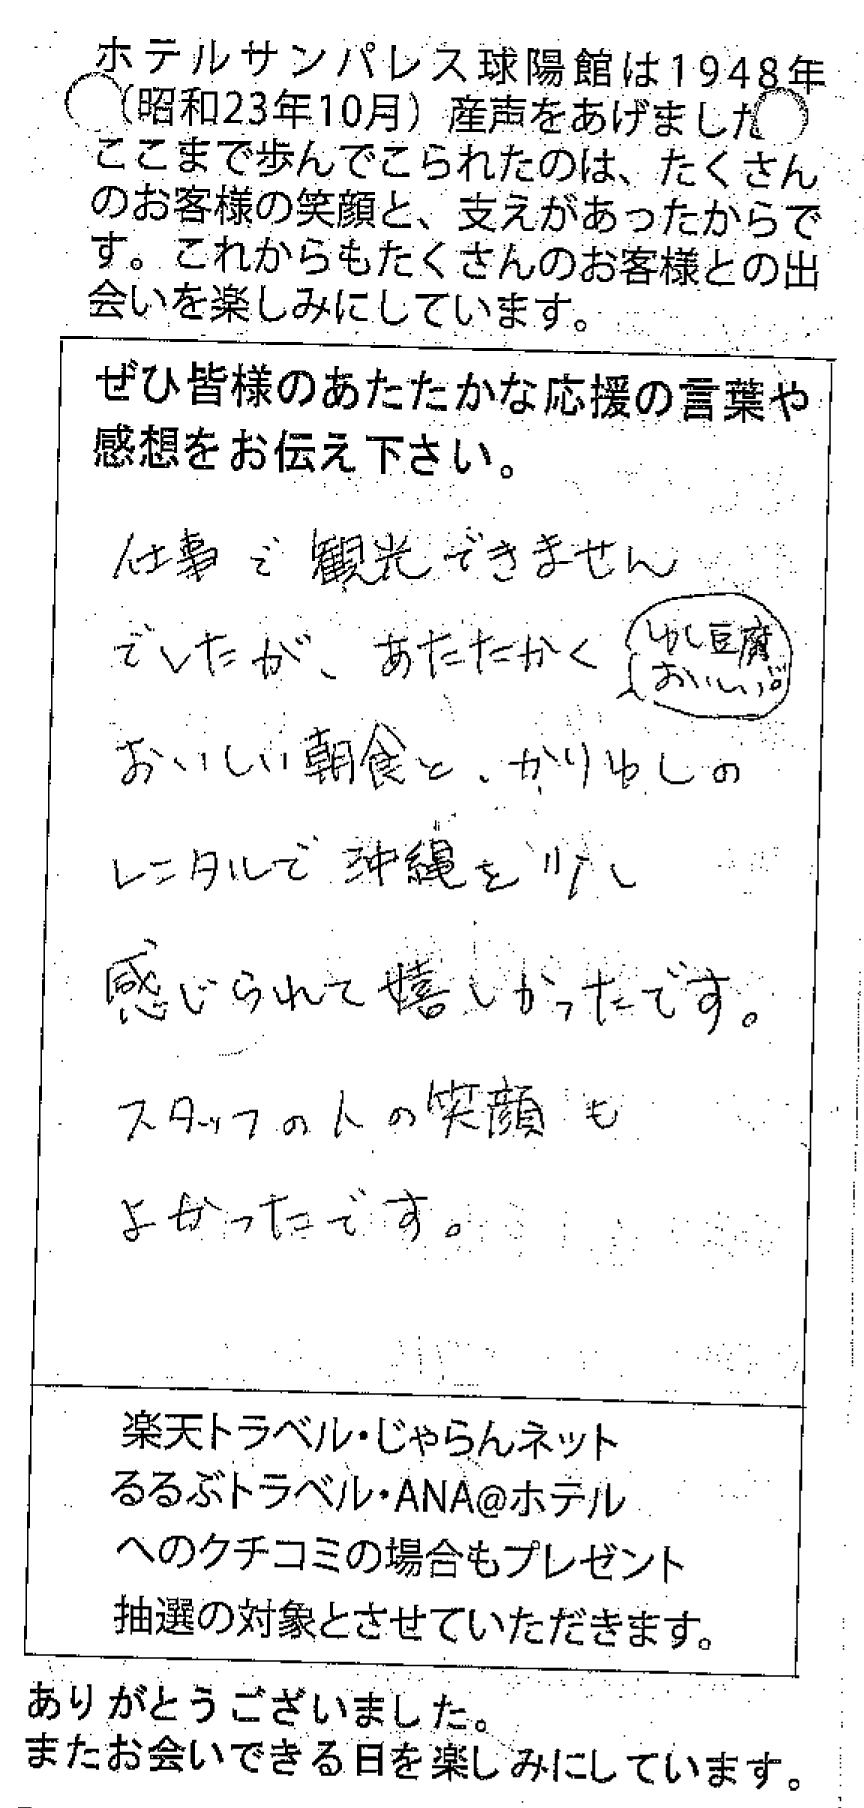 ホテルサンパレス球陽館は1948年
（昭和23年10月）産声をあげました
ここまで歩んでこられたのは、たくさん
のお客様の笑顔と、支えがあったからで
す。これからもたくさんのお客様との出
会いを楽しみにしています。
ぜひ皆様のあたたかな応援の言葉や
感想をお伝え下さい。
仕事で観光できません
でしたが、あたたかく
ゆし豆腐
おいしい。
おいしい朝食と、かりゆしの
レンタルで沖縄を少し
感じられて嬉しかったです。
スタッフの人の笑顔も
よかったです。
楽天トラベル・じゃらんネット
るるぶトラベル・ANA@ホテル
へのクチコミの場合もプレゼント
抽選の対象とさせていただきます。
ありがとうございました。
またお会いできる日を楽しみにしています。